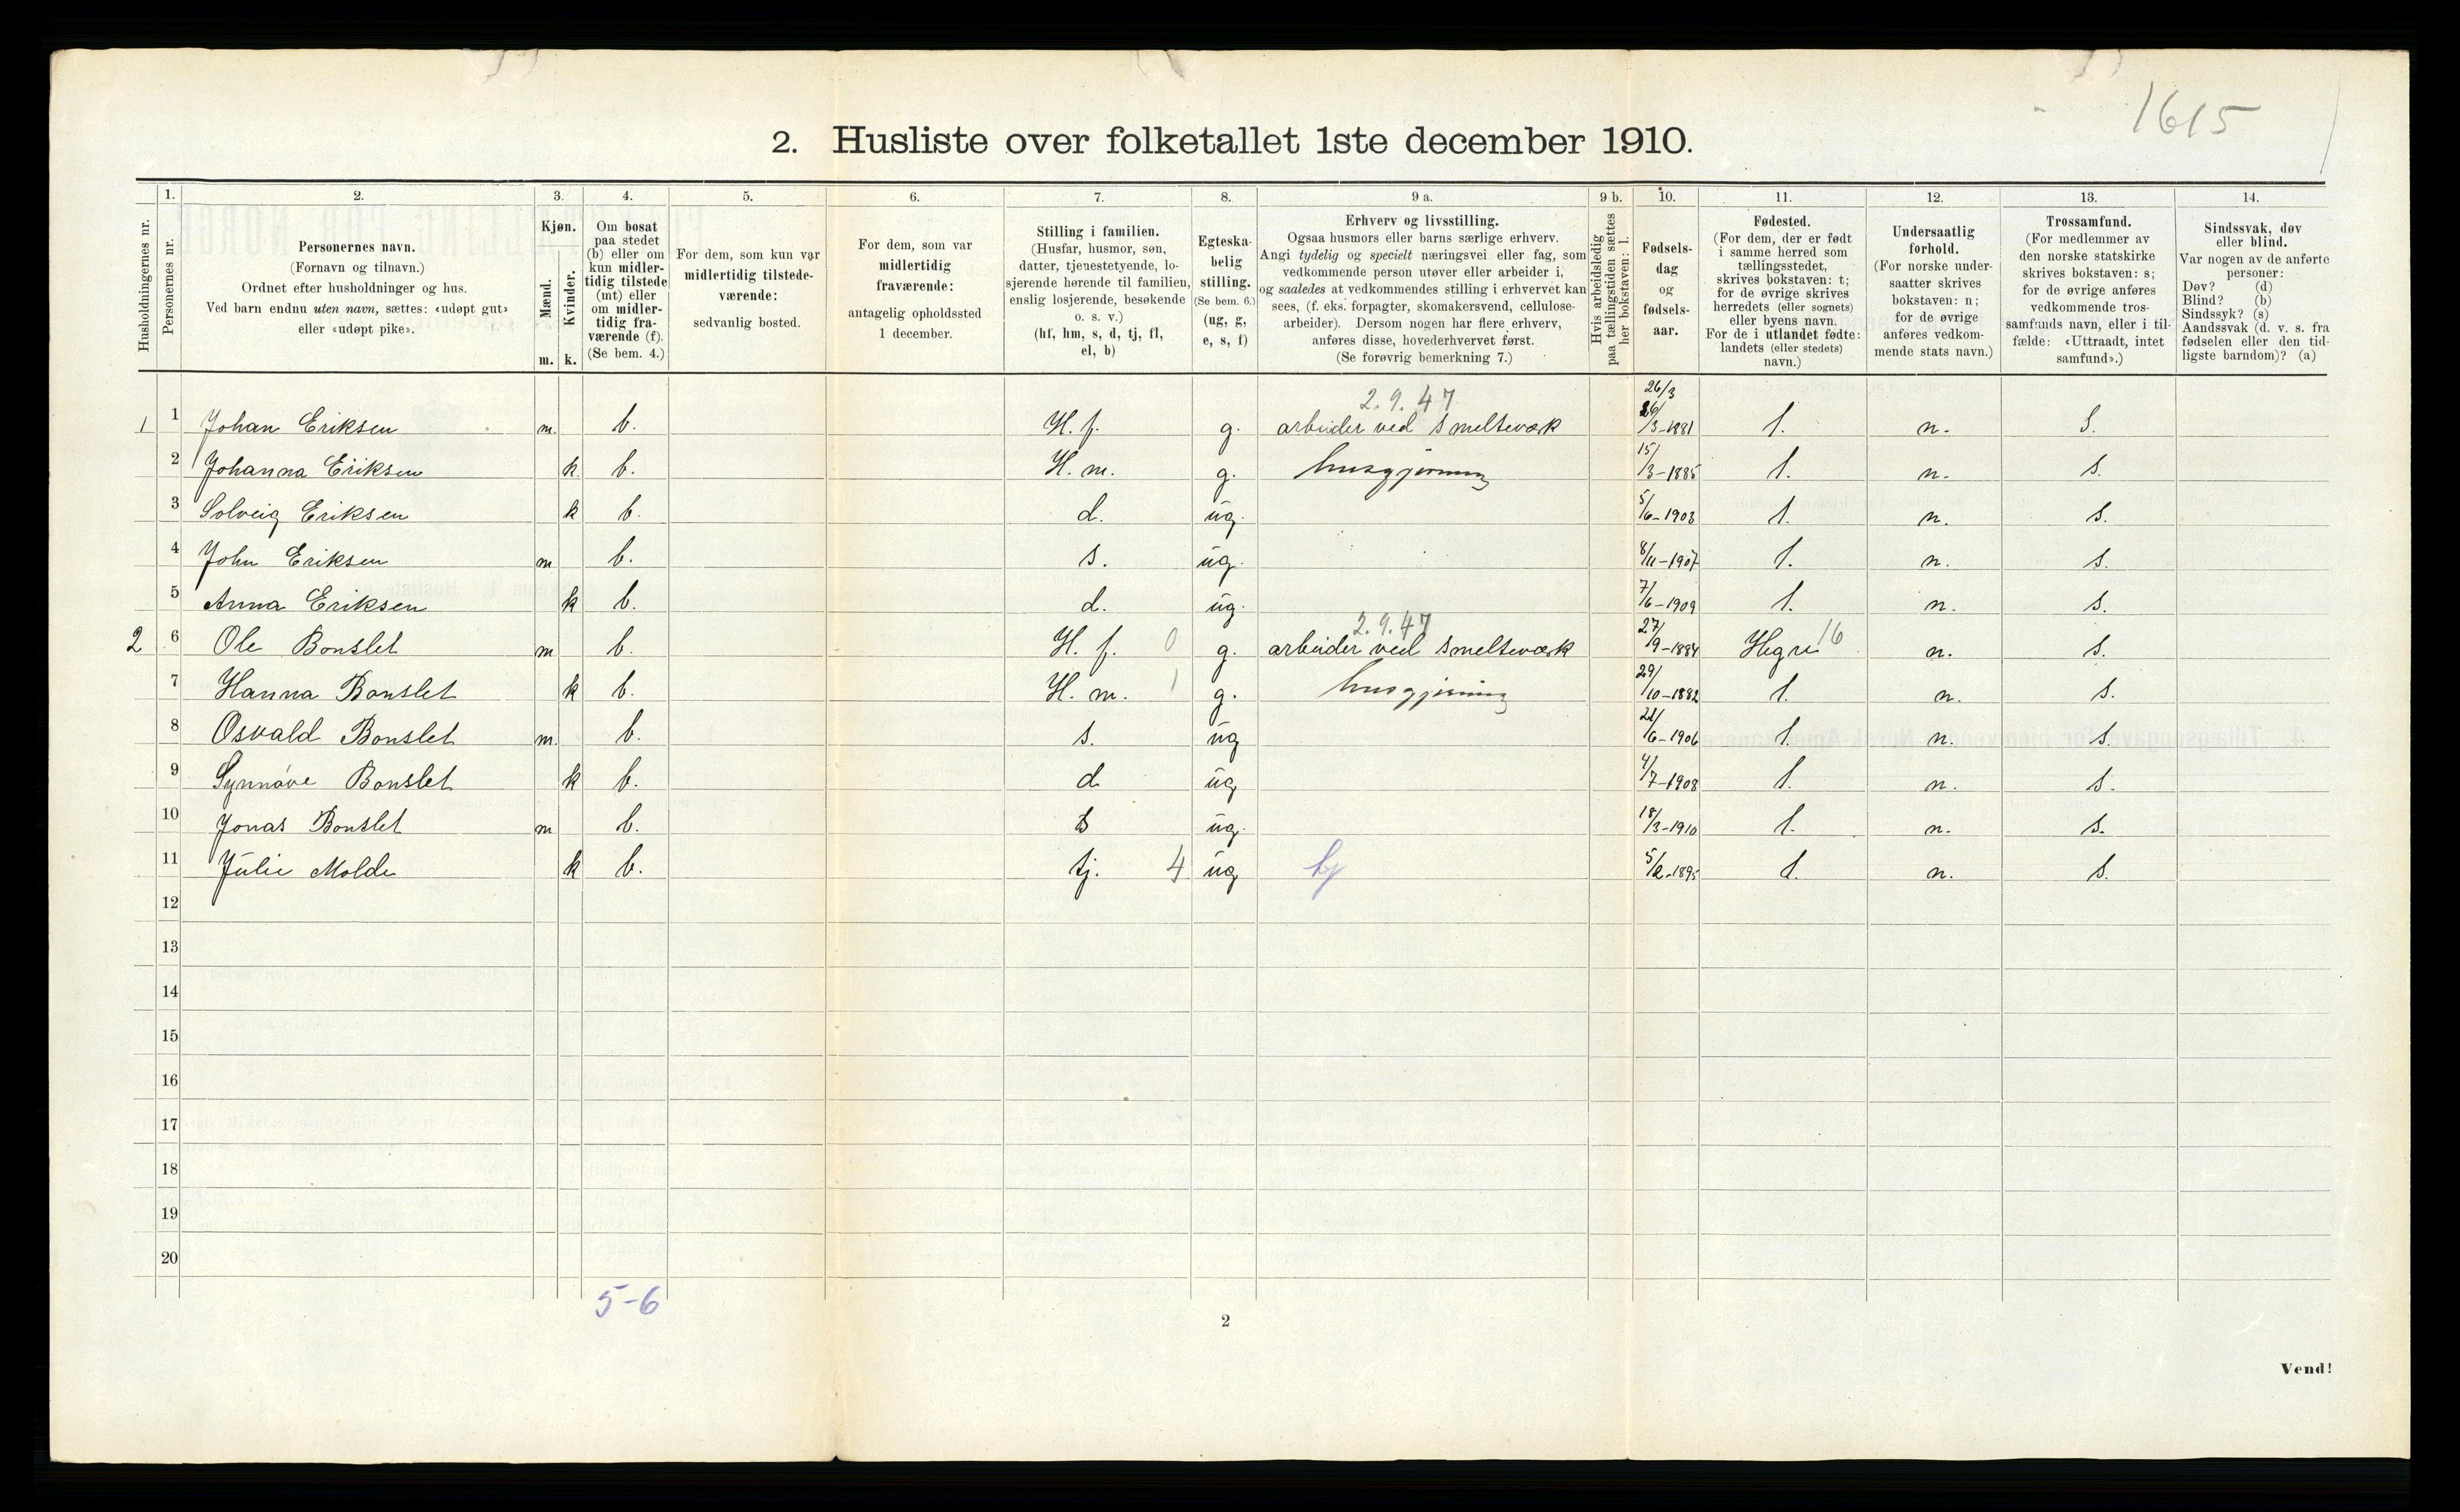 1615
2. Husliste over folketallet 1ste december 1910.
Husholdningernes nr.
1. Personernes nr.
2. Personernes navn. (Fornavn og tilnavn.) Ordnet efter husholdninger og hus. Ved barn endnu uten navn, sættes: «udøpt gut» eller «udøpt pike».
3. Kjøn. Mænd. m. Kvinder. k.
4. Om bosat paa stedet (b) eller om kun midlertidig tilstede (mt) eller om midlertidig fraværende (f). (Se bem. 4.)
5. For dem, som kun var midlertidig tilstedeværende: sedvanlig bosted.
6. For dem, som var midlertidig fraværende: antagelig opholdssted 1 december.
7. Stilling i familien. (Husfar, husmor, søn, datter, tjenestetyende, losjerende hørende til familien, enslig losjerende, besøkende o. s. v.) (hf, hm, s, d, tj, fl, el, b)
8. Egteskabelig stilling. (Se bem. 6.) (ug, g, e, s, f)
9 a. Erhverv og livsstilling. Ogsaa husmors eller barns særlige erhverv. Angi tydelig og specielt næringsvei eller fag, som vedkommende person utøver eller arbeider i, og saaledes at vedkommendes stilling i erhvervet kan sees, (f. eks. forpagter, skomakersvend, cellulosearbeider). Dersom nogen har flere erhverv, anføres disse, hovederhvervet først. (Se forøvrig bemerkning 7.)
9 b. Hvis arbeidsledig paa tællingstiden sættes her bokstaven: l.
10. Fødselsdag og fødselsaar.
11. Fødested. (For dem, der er født i samme herred som tællingsstedet, skrives bokstaven: t; for de øvrige skrives herredets (eller sognets) eller byens navn. For de i utlandet fødte: landets (eller stedets) navn.)
12. Undersaatlig forhold. (For norske undersaatter skrives bokstaven: n; for de øvrige anføres vedkommende stats navn.)
13. Trossamfund. (For medlemmer av den norske statskirke skrives bokstaven: s; for de øvrige anføres vedkommende trossamfunds navn, eller i tilfælde: «Uttraadt, intet samfund».)
14. Sindssvak, døv eller blind. Var nogen av de anførte personer: Døv? (d) Blind? (b) Sindssyk? (s) Aandssvak (d. v. s. fra fødselen eller den tidligste barndom)? (a)
2.9.47 26/3
1 1 Johan Eriksen m. b. H. f. g. arbeider ved smelteværk 26/3-1881 t. n. S.
2 Johanna Eriksen k. b. H. m. g. husgjerning 15/3-1885 t. n. s.
3 Solveig Eriksen k b. d. ug. 5/6-1903 t. n. s.
4 John Eriksen m b. s. ug. 8/11-1907 t. n. s.
5 Anna Eriksen k b. d. ug. 7/6-1909 t. n. s.
2.9.47
2 6 Ole Bonslet m b. H. f. 0 g. arbeider ved smelteværk 27/9-1884 Hegre 16 n. s.
7 Hanna Bonslet k b. H. m. 1 g. husgjerning 29/10-1882 t. n. s.
8 Osvald Bonslet m. b. s. ug 22/6-1906 t. n. s.
9 Synnøve Bonslet k b. d ug 4/7-1908 t. n. s.
10 Jonas Bonslet m b. s ug. 18/3-1910 t. n. s.
11 Julie Molde k b. tj. 4 ug tj 5/2-1895 t. n. s.
12
13
14
15
16
17
18
19
20
5-6
2
Vend!